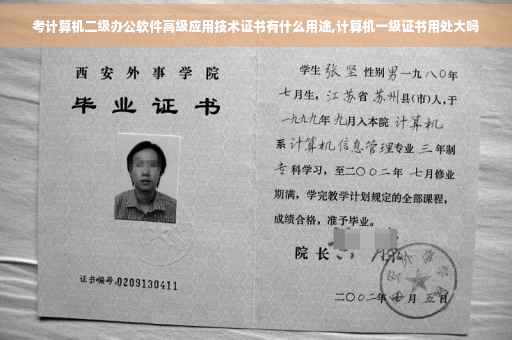 考计算机二级办公软件高级应用技术证书有什么用途,计算机一级证书用处大吗
西安外事学院
毕业证书
证书编号:0209130411
学生张坚性别男一九八〇年
七月生,江苏省苏州县(市)人,于
一九九九年九月入本院计算机
系计算机信息管理专业三年制
专科学习,至二〇〇二年七月修业
期满,学完教学计划规定的全部课程,
成绩合格,准予毕业。
院长
二〇〇二年七月五日